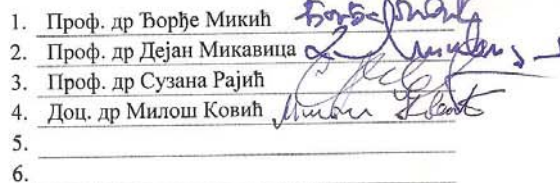 1. Проф. др Ђорђе Микић
2. Проф. др Дејан Микавица
3. Проф. др Сузана Рајић
4. Доц. др Милош Ковић Милош Ковић
5.
6.